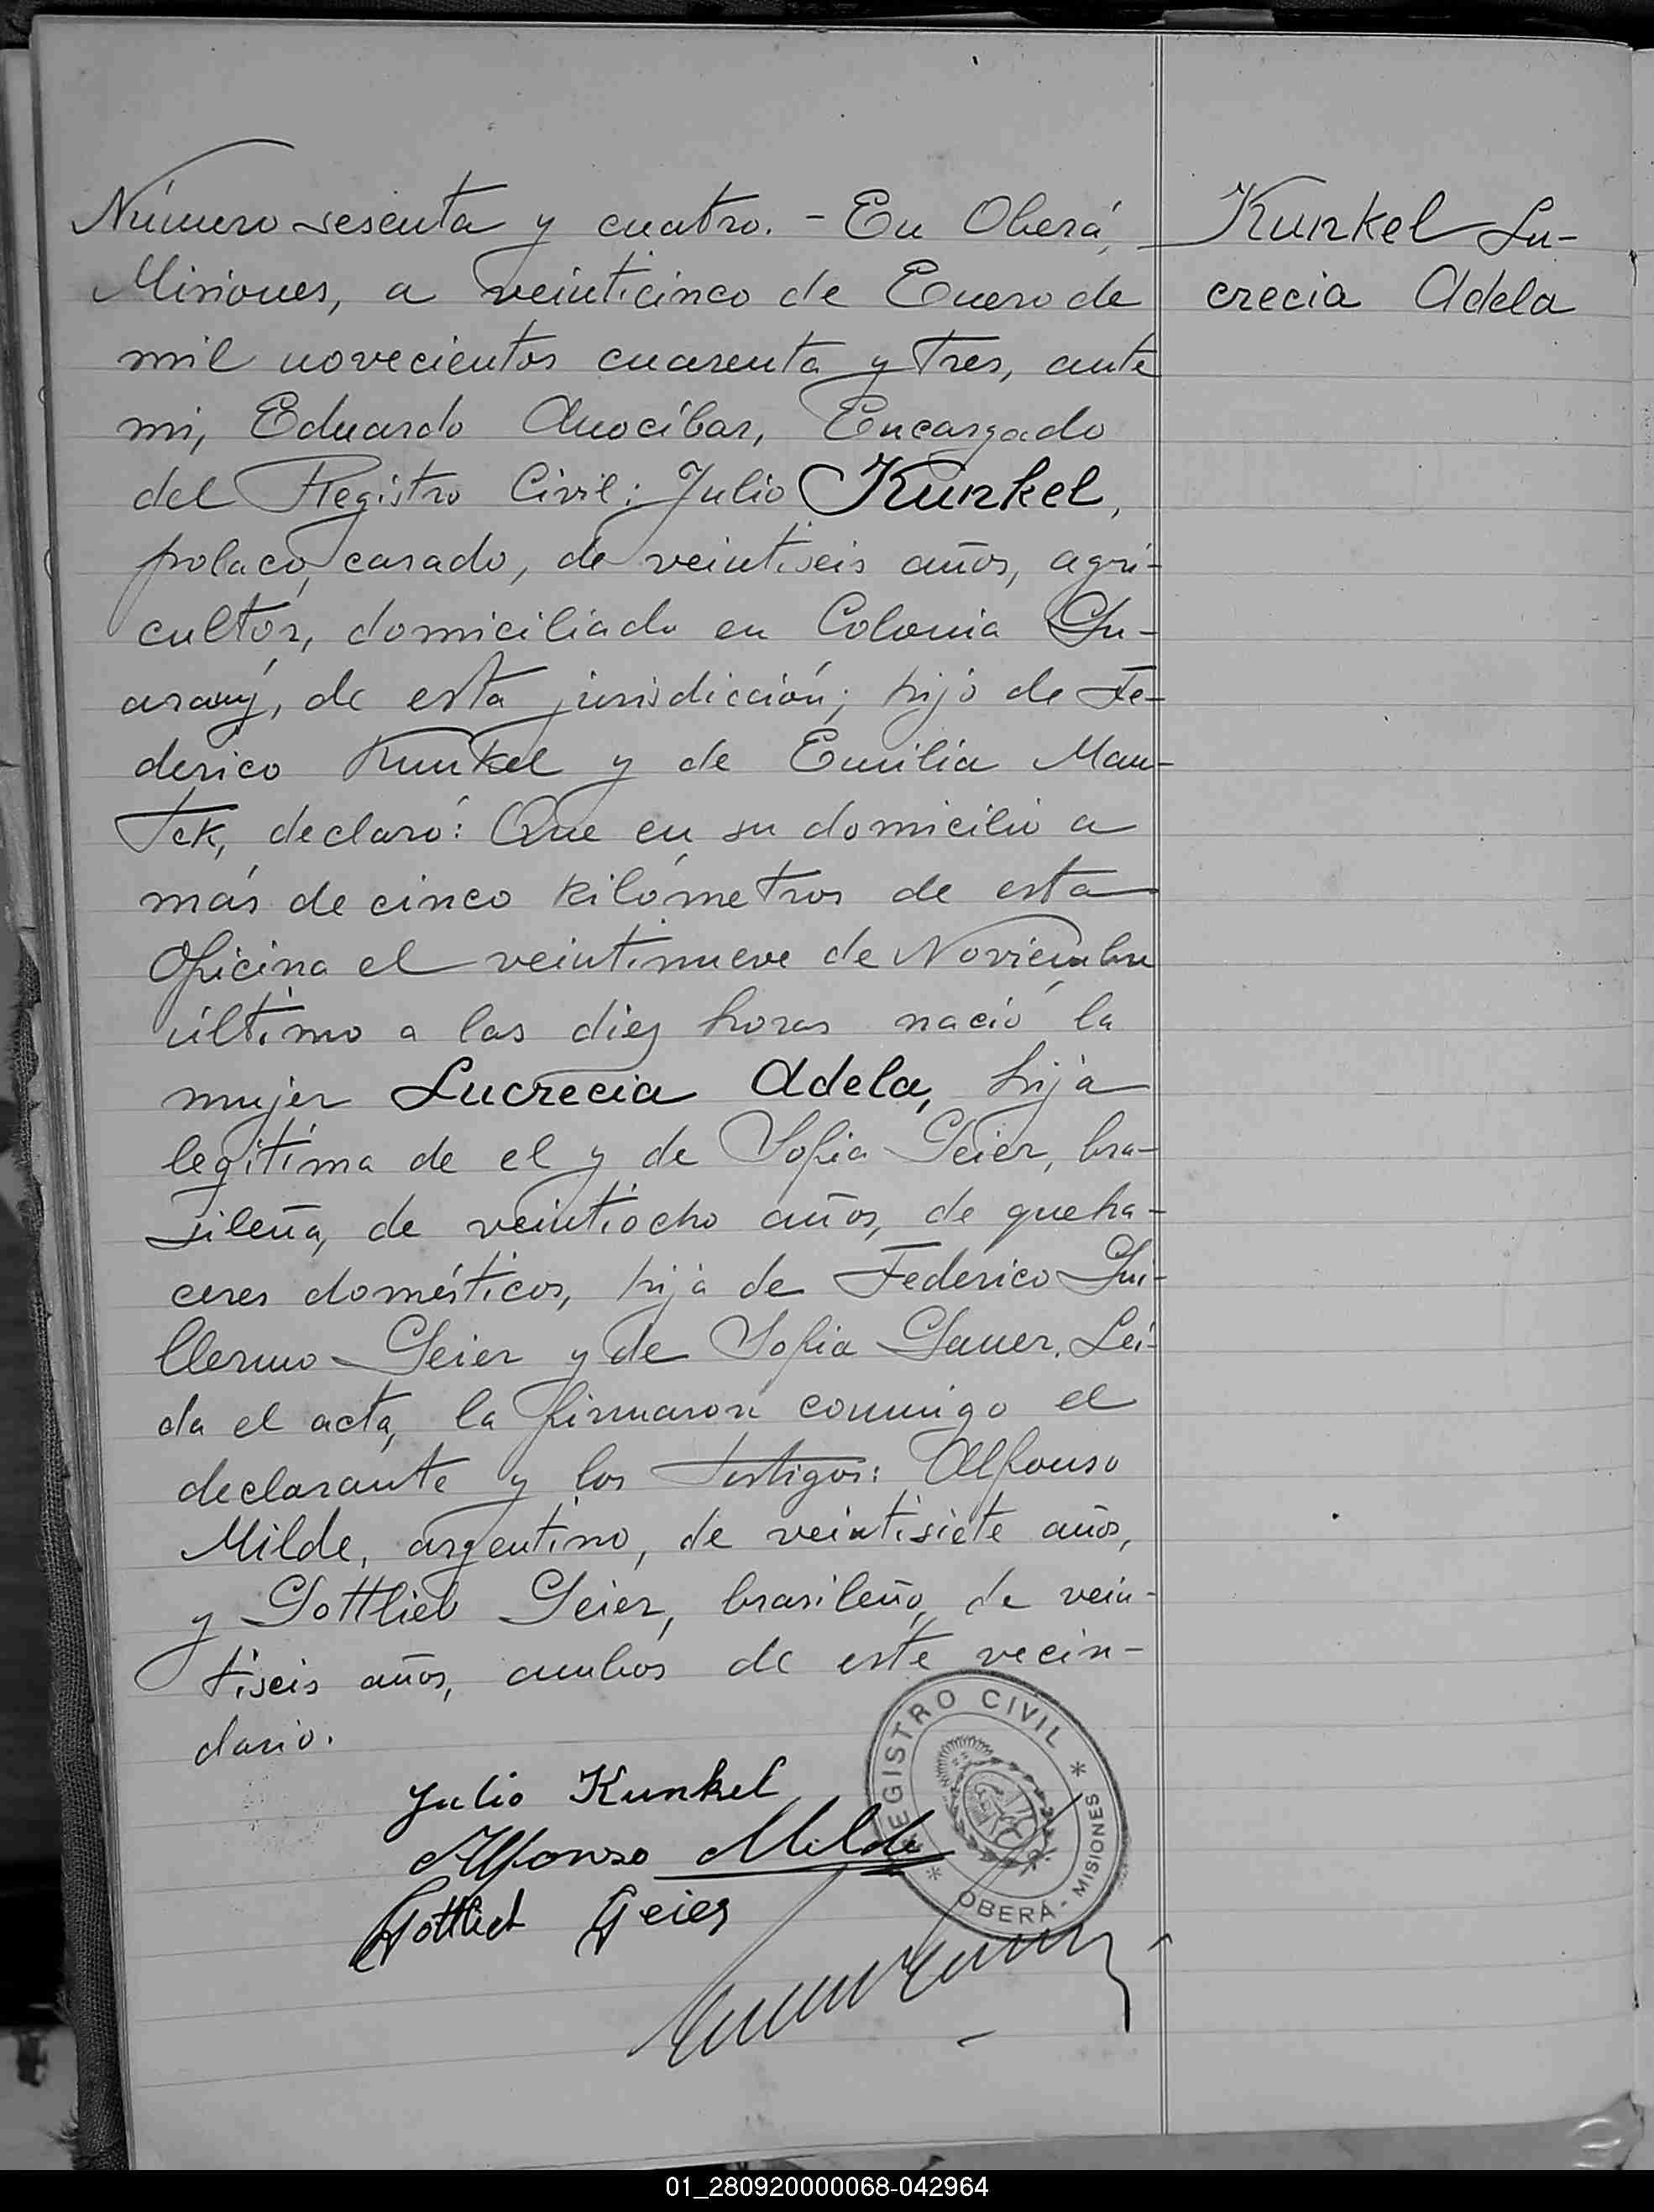 Número sesenta y cuatro. - En Oberá,
Misiones, a veinticinco de Enero de
mil novecientos cuarenta y tres, ante
mi, Eduardo Anocíbar, Encargado
del Registro Civil: Julio Kunkel,
polaco, casado, de veintiseis años, agri-
cultor, domiciliado en Colonia Gu-
arany, de esta jurisdicción; hijo de Fe-
derico Kunkel y de Emilia Man-
tek, declaró: Que en su domicilio a
más de cinco kilómetros de esta
Oficina el veintinueve de Noviembre
último a las diez horas nació la
mujer Lucrecia Adela, hija
legítima de el y de Sofia Geier, bra-
sileña, de veintiocho años, de queha-
ceres domésticos, hija de Federico Gui-
llermo Geier y de Sofia Gauer. Leí-
da el acta, la firmaron conmigo el
declarante y los testigos: Alfonso
Milde, argentino, de veintisiete años,
y Gottlieb Geier, brasileño, de vein-
tiseis años, ambos de este vecin-
dario.
Kunkel Lu-
crecia Adela
Julio Kunkel
Alfonso Milde
Gottlieb Geier
REGISTRO CIVIL
* OBERÁ - MISIONES *
01_280920000068-042964